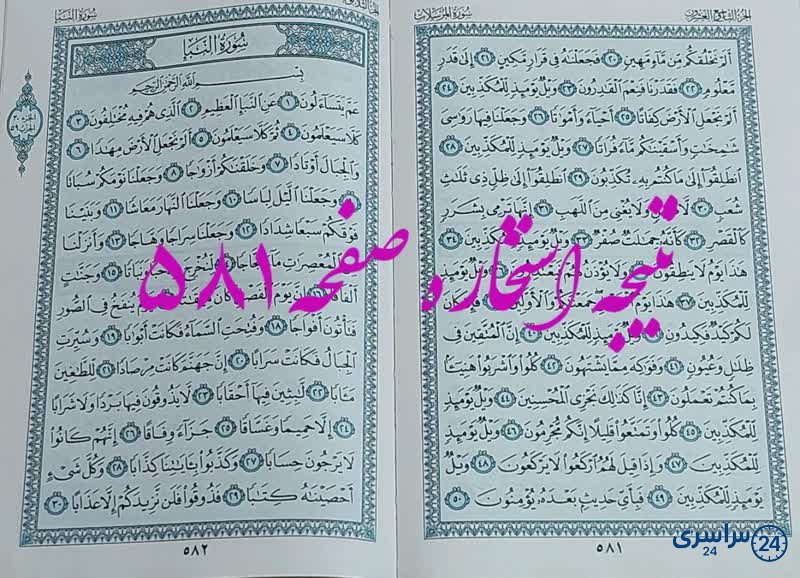 الجزء التاسع والعشرون
سورة المرسلات
ألم نخلقكم من ماء مهين ٢٠ فجعلناه في قرار مكين ٢١ إلى قدر
معلوم ٢٢ فقدرنا فنعم القادرون ٢٣ ويل يومئذ للمكذبين ٢٤
ألم نجعل الأرض كفاتا ٢٥ أحياء وأمواتا ٢٦ وجعلنا فيها رواسي
شامخات وأسقيناكم ماء فراتا ٢٧ ويل يومئذ للمكذبين ٢٨
انطلقوا إلى ما كنتم به تكذبون ٢٩ انطلقوا إلى ظل ذي ثلاث
شعب ٣٠ لا ظليل ولا يغني من اللهب ٣١ إنها ترمي بشرر
كالقصر ٣٢ كأنه جمالت صفر ٣٣ ويل يومئذ للمكذبين ٣٤
هذا يوم لا ينطقون ٣٥ ولا يؤذن لهم فيعتذرون ٣٦ ويل يومئذ
للمكذبين ٣٧ هذا يوم الفصل جمعناكم والأولين ٣٨ فإن كان
لكم كيد فكيدون ٣٩ ويل يومئذ للمكذبين ٤٠ إن المتقين في
ظلال وعيون ٤١ وفواكه مما يشتهون ٤٢ كلوا واشربوا هنيئا
بما كنتم تعملون ٤٣ إنا كذلك نجزي المحسنين ٤٤ ويل يومئذ
للمكذبين ٤٥ كلوا وتمتعوا قليلا إنكم مجرمون ٤٦ ويل يومئذ
للمكذبين ٤٧ وإذا قيل لهم اركعوا لا يركعون ٤٨ ويل
يومئذ للمكذبين ٤٩ فبأي حديث بعده يؤمنون ٥٠
٥٨١
سورة النبإ
سورة النبإ
بسم الله الرحمن الرحيم
عم يتساءلون ١ عن النبإ العظيم ٢ الذي هم فيه مختلفون ٣
كلا سيعلمون ٤ ثم كلا سيعلمون ٥ ألم نجعل الأرض مهادا ٦
والجبال أوتادا ٧ وخلقناكم أزواجا ٨ وجعلنا نومكم سباتا
٩ وجعلنا الليل لباسا ١٠ وجعلنا النهار معاشا ١١ وبنينا
فوقكم سبعا شدادا ١٢ وجعلنا سراجا وهاجا ١٣ وأنزلنا
من المعصرات ماء ثجاجا ١٤ لنخرج به حبا ونباتا ١٥ وجنات
ألفافا ١٦ إن يوم الفصل كان ميقاتا ١٧ يوم ينفخ في الصور
فتأتون أفواجا ١٨ وفتحت السماء فكانت أبوابا ١٩ وسيرت
الجبال فكانت سرابا ٢٠ إن جهنم كانت مرصادا ٢١ للطاغين
مآبا ٢٢ لابثين فيها أحقابا ٢٣ لا يذوقون فيها بردا ولا شرابا
٢٤ إلا حميما وغساقا ٢٥ جزاء وفاقا ٢٦ إنهم كانوا
لا يرجون حسابا ٢٧ وكذبوا بآياتنا كذابا ٢٨ وكل شيء
أحصيناه كتابا ٢٩ فذوقوا فلن نزيدكم إلا عذابا ٣٠
٥٨٢
نتیجه استخاره صفحه ۵۸۱
سراسری
24
24